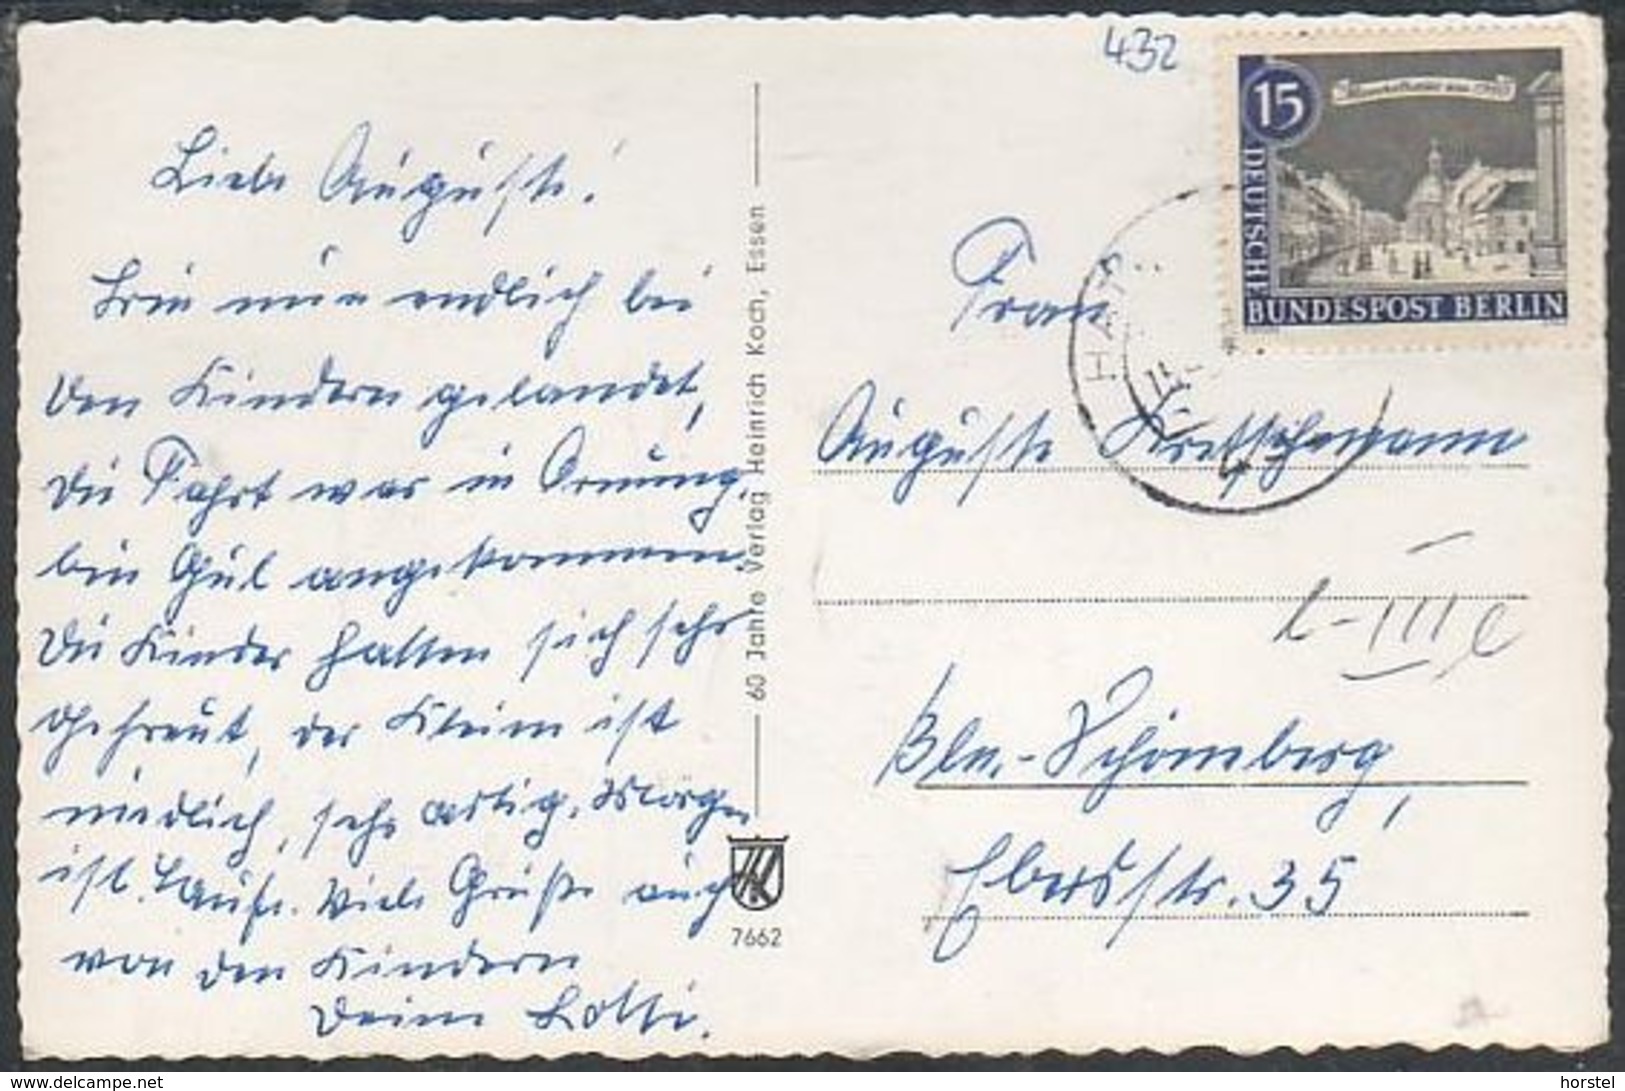 432
15
DEUTSCHE
BUNDESPOST BERLIN
Liebe Auguste!
Bin nun endlich bei
den Kindern gelandet,
die Fahrt war in Ornung,
bin Gut angekommen.
Die Kinder hatten sich sehr
Gefreut, der Kleine ist
niedlich, sehr artig. Morgen
ist Taufe. Viele Grüße auch
von den Kindern
Deine Lotti.
60 Jahre Verlag Heinrich Koch, Essen
7662
Frau
Auguste Kretschmann
Bln.-Schöneberg,
Ebersstr. 35
delcampe.net
horstel